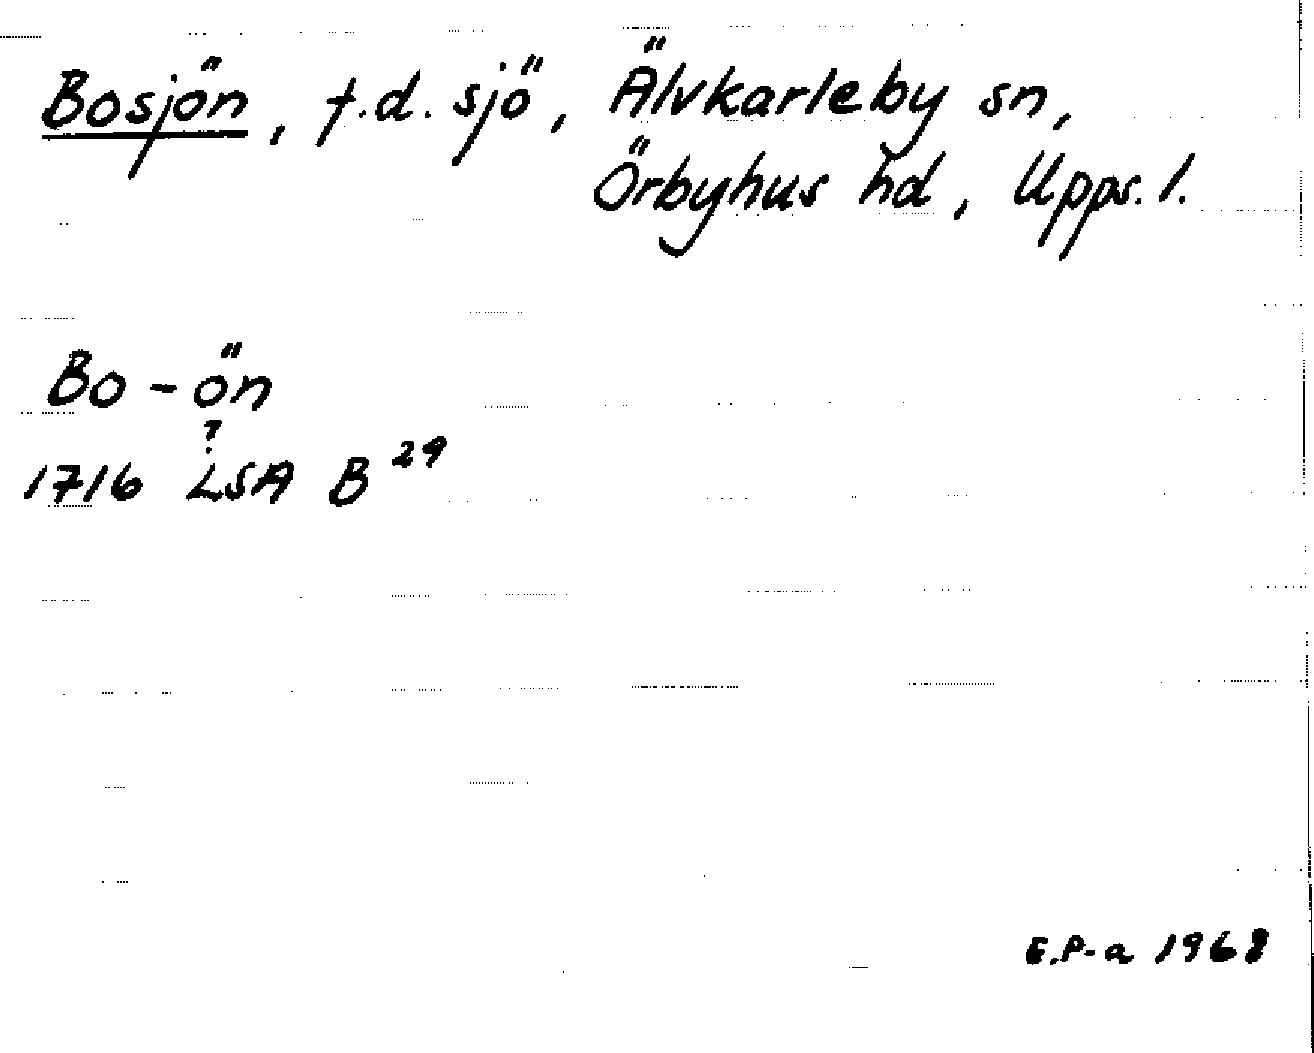 Bosjön, f.d. sjö, Älvkarleby sn,
Örbyhus hd, Upps. l.
Bo-ön
?
1716 LSA B 29
E.P-a 1968